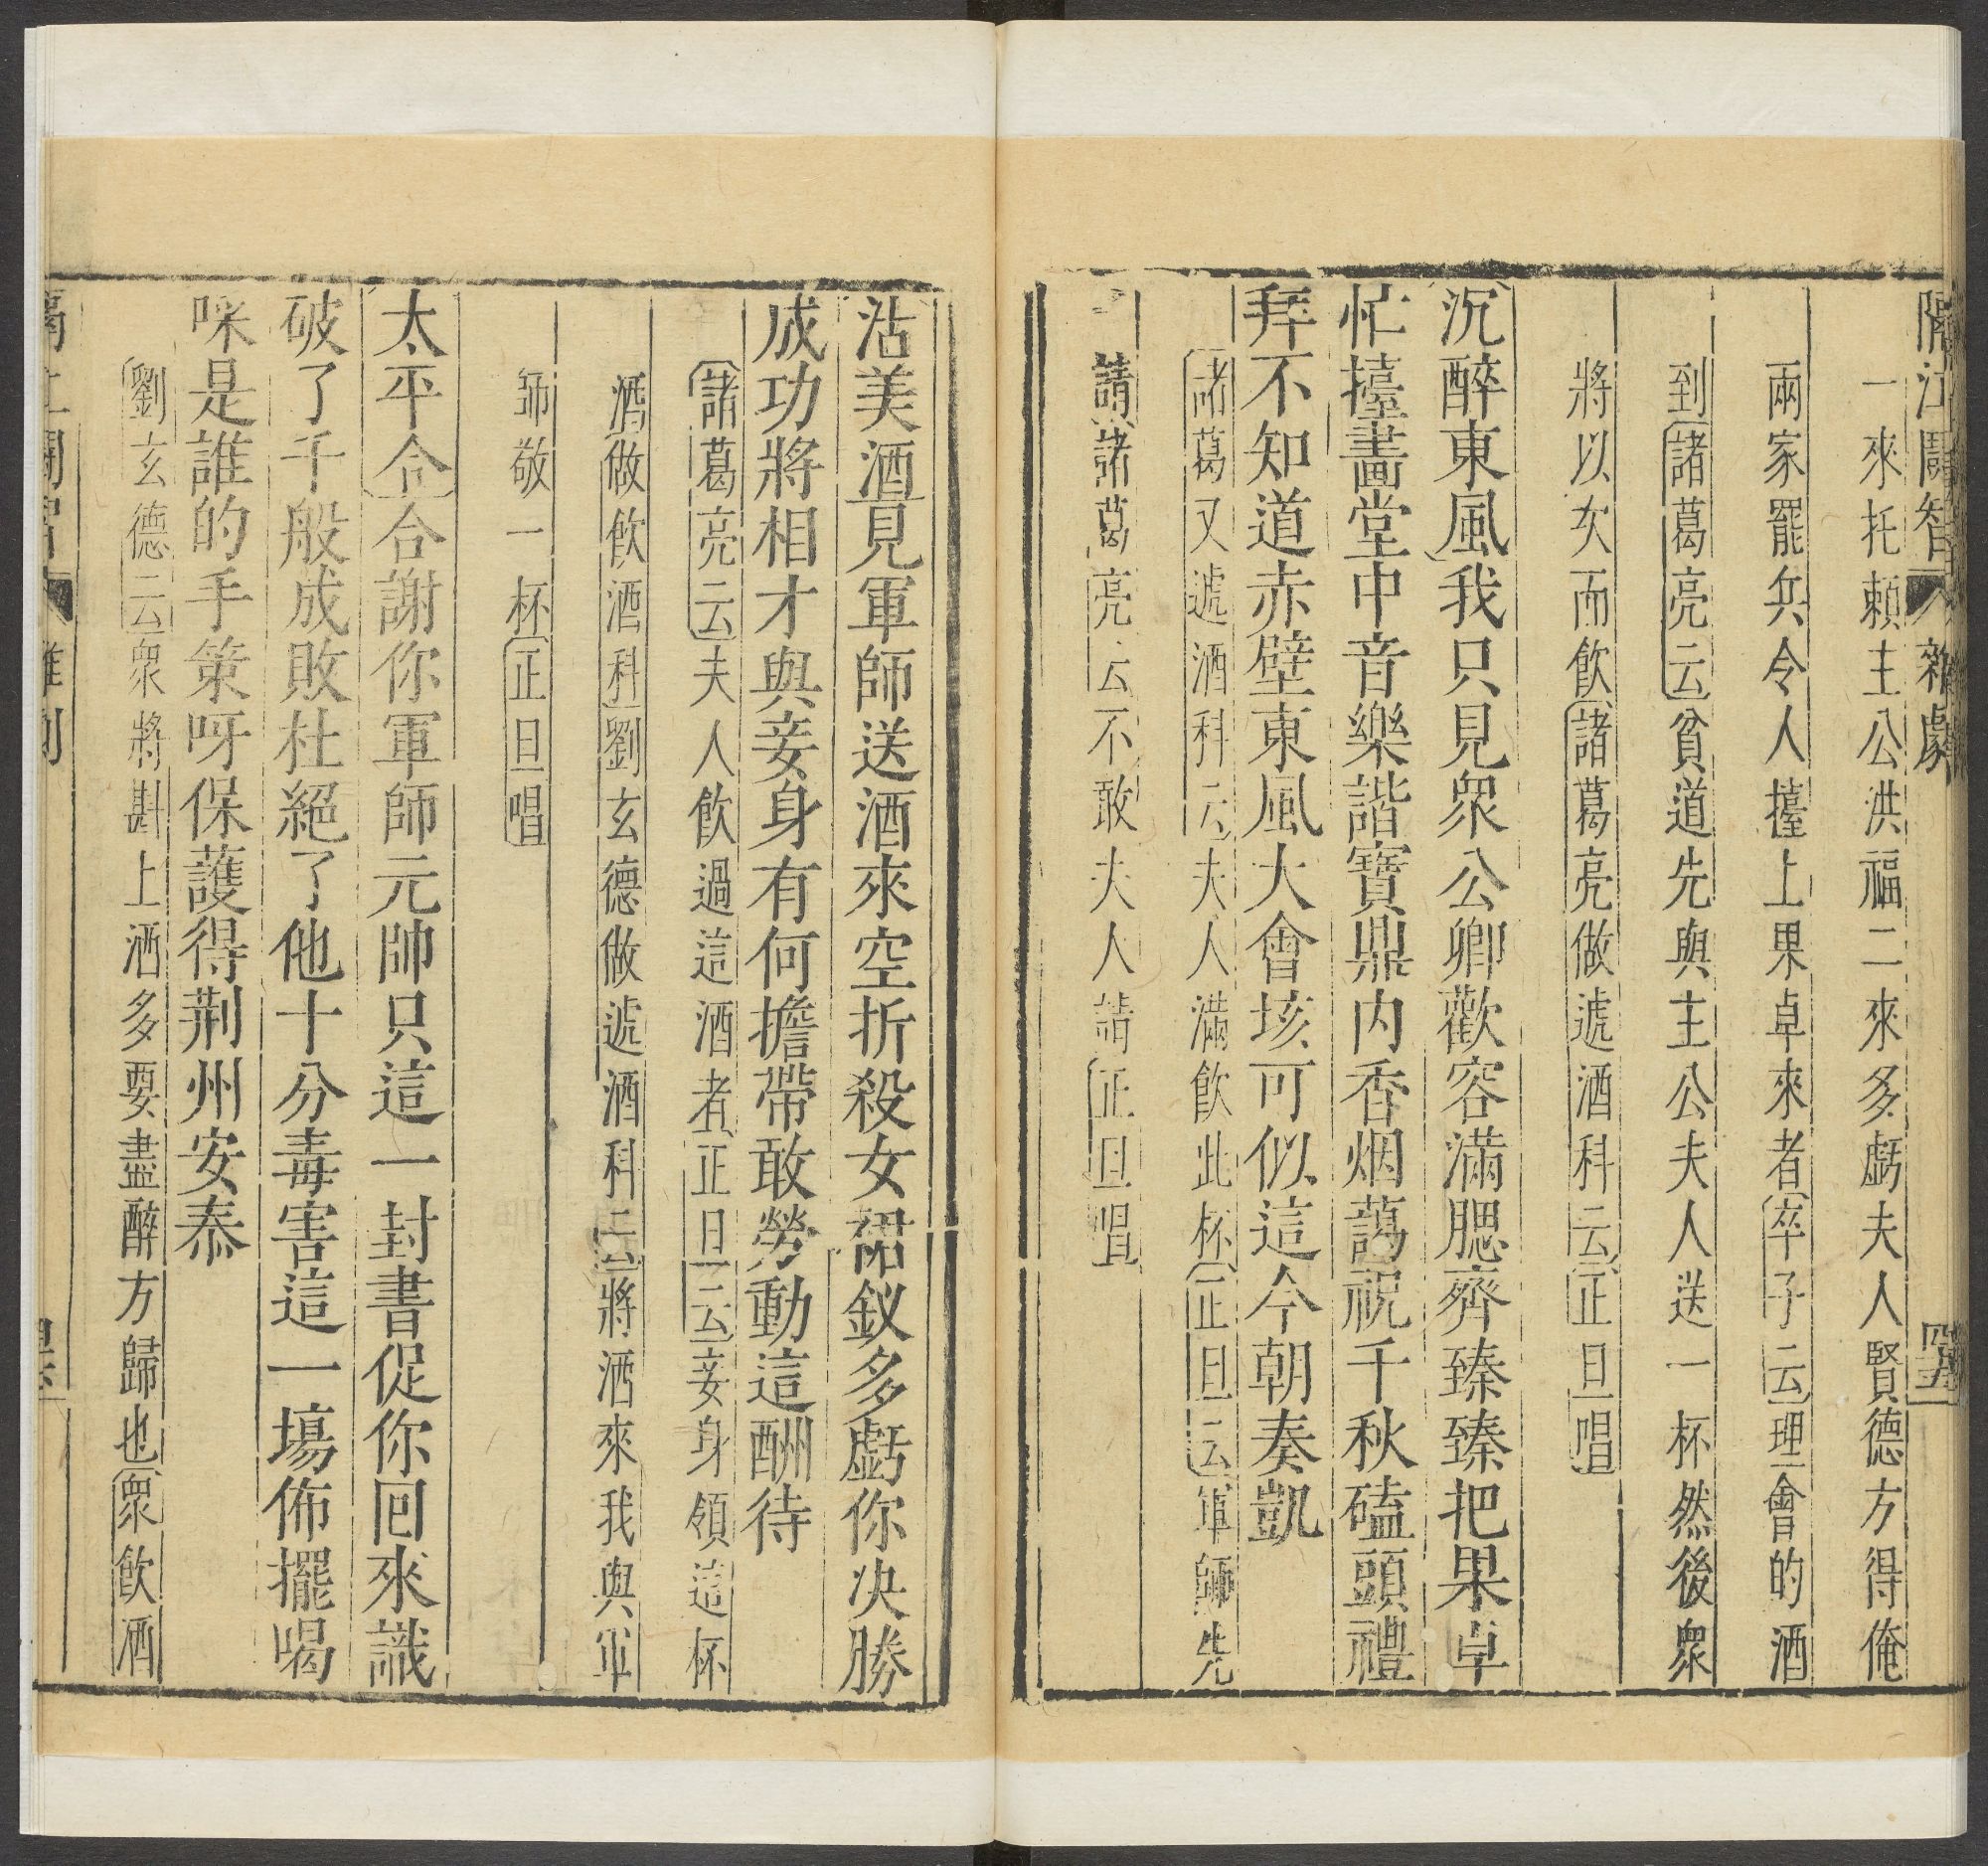 隔江鬬智 雜劇 四五
一來托賴主公洪福二來多虧夫人賢德方得俺
兩家罷兵令人擡上果卓來者卒子云理會的酒
到諸葛亮云貧道先與主公夫人送一杯然後衆
將以次而飲諸葛亮做遞酒科云正旦唱
沉醉東風我只見衆公卿歡容滿腮齊臻臻把果卓
忙擡畵堂中音樂諧寶鼎內香烟藹祝千秋磕頭禮
拜不知道赤壁東風大會垓可似這今朝奏凱
諸葛又遞酒科云夫人滿飲此杯正旦云軍師先
請諸葛亮云不敢夫人請正旦唱
沽美酒見軍師送酒來空折殺女裙釵多虧你决勝
成功將相才與妾身有何擔帶敢勞動這酬待
諸葛亮云夫人飲過這酒者正旦云妾身領這杯
酒做飲酒科劉玄德做遞酒科云將酒來我與軍
師敬一杯正旦唱
太平令合謝你軍師元帥只這一封書促你囘來識
破了千般成敗杜絕了他十分毒害這一塲佈擺喝
咪是誰的手策呀保護得荆州安泰
劉玄德云衆將斟上酒多要盡醉方歸也衆飲酒